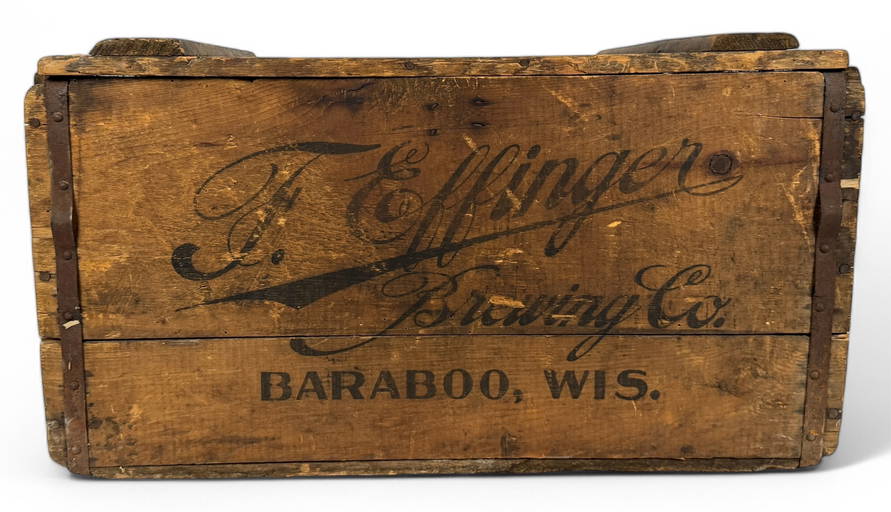 F. Effinger
Brewing Co.
BARABOO, WIS.